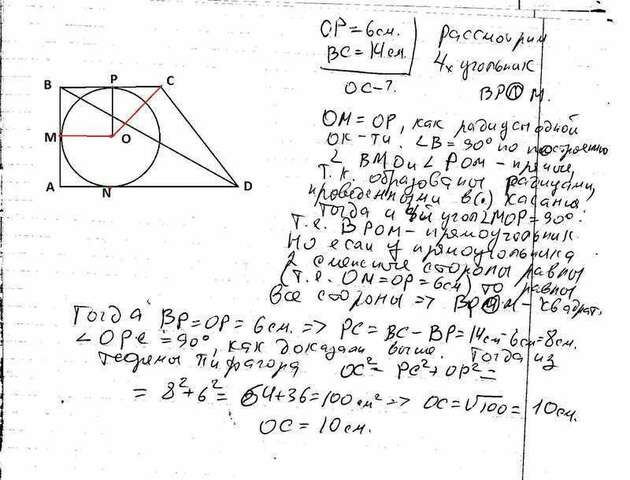 OP = 6 см.
BC = 14 см.
OC - ?
рассмотрим
4х угольник
BPOM.
B P C
M O
A N D
OM = OP, как радиусы одной
ок-ти. ∠B = 90° по построению
∠ BMO и ∠ POM - прямые,
т.к. образованы радиусами,
проведенными в (.) касания
Тогда и 4й угол ∠MOP = 90°.
т.е. BPOM - прямоугольник
Но если у прямоугольника
2 смежные стороны равны
(т.е. OM = OP = 6см) то равны
все стороны => BPOM - квадрат.
Тогда BP = OP = 6 см. => PC = BC - BP = 14см - 6см = 8см.
∠ OPC = 90°, как доказали выше. Тогда из
теоремы Пифагора OC² = PC² + OP² =
= 8² + 6² = 64 + 36 = 100 см² => OC = √100 = 10 см.
OC = 10 см.